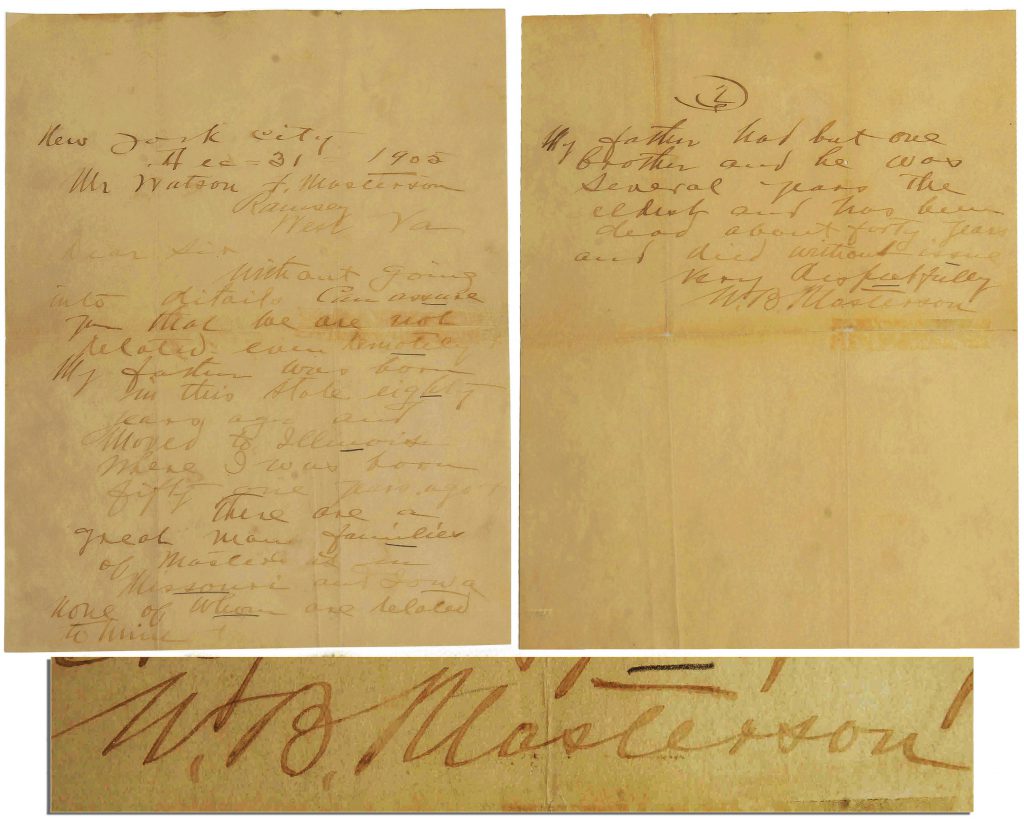 New York City
Dec - 31 - 1905
Mr Watson J. Masterson
Ramsey
West Va
Dear Sir
Without going
into details Can assure
you that we are not
related even remotely
My father was born
in this State eighty
years ago and
Moved to Illinois
Where I was born
fifty one years ago
There are a
great many families
of Masterson in
Missouri and Iowa
None of Whom are related
to mine
2
My father had but one
brother and he was
Several years the
eldest and has been
dead about forty years
and died without issue
Very Respectfully
W.B. Masterson
W.B. Masterson